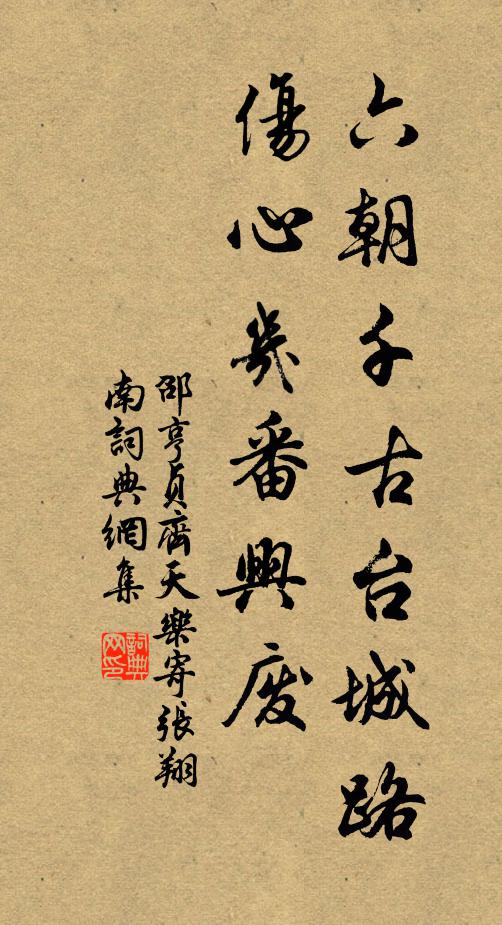 六朝千古台城路
傷心幾番興廢
邵亨貞齊天樂寄張翔
南詞典網集
詞典网印